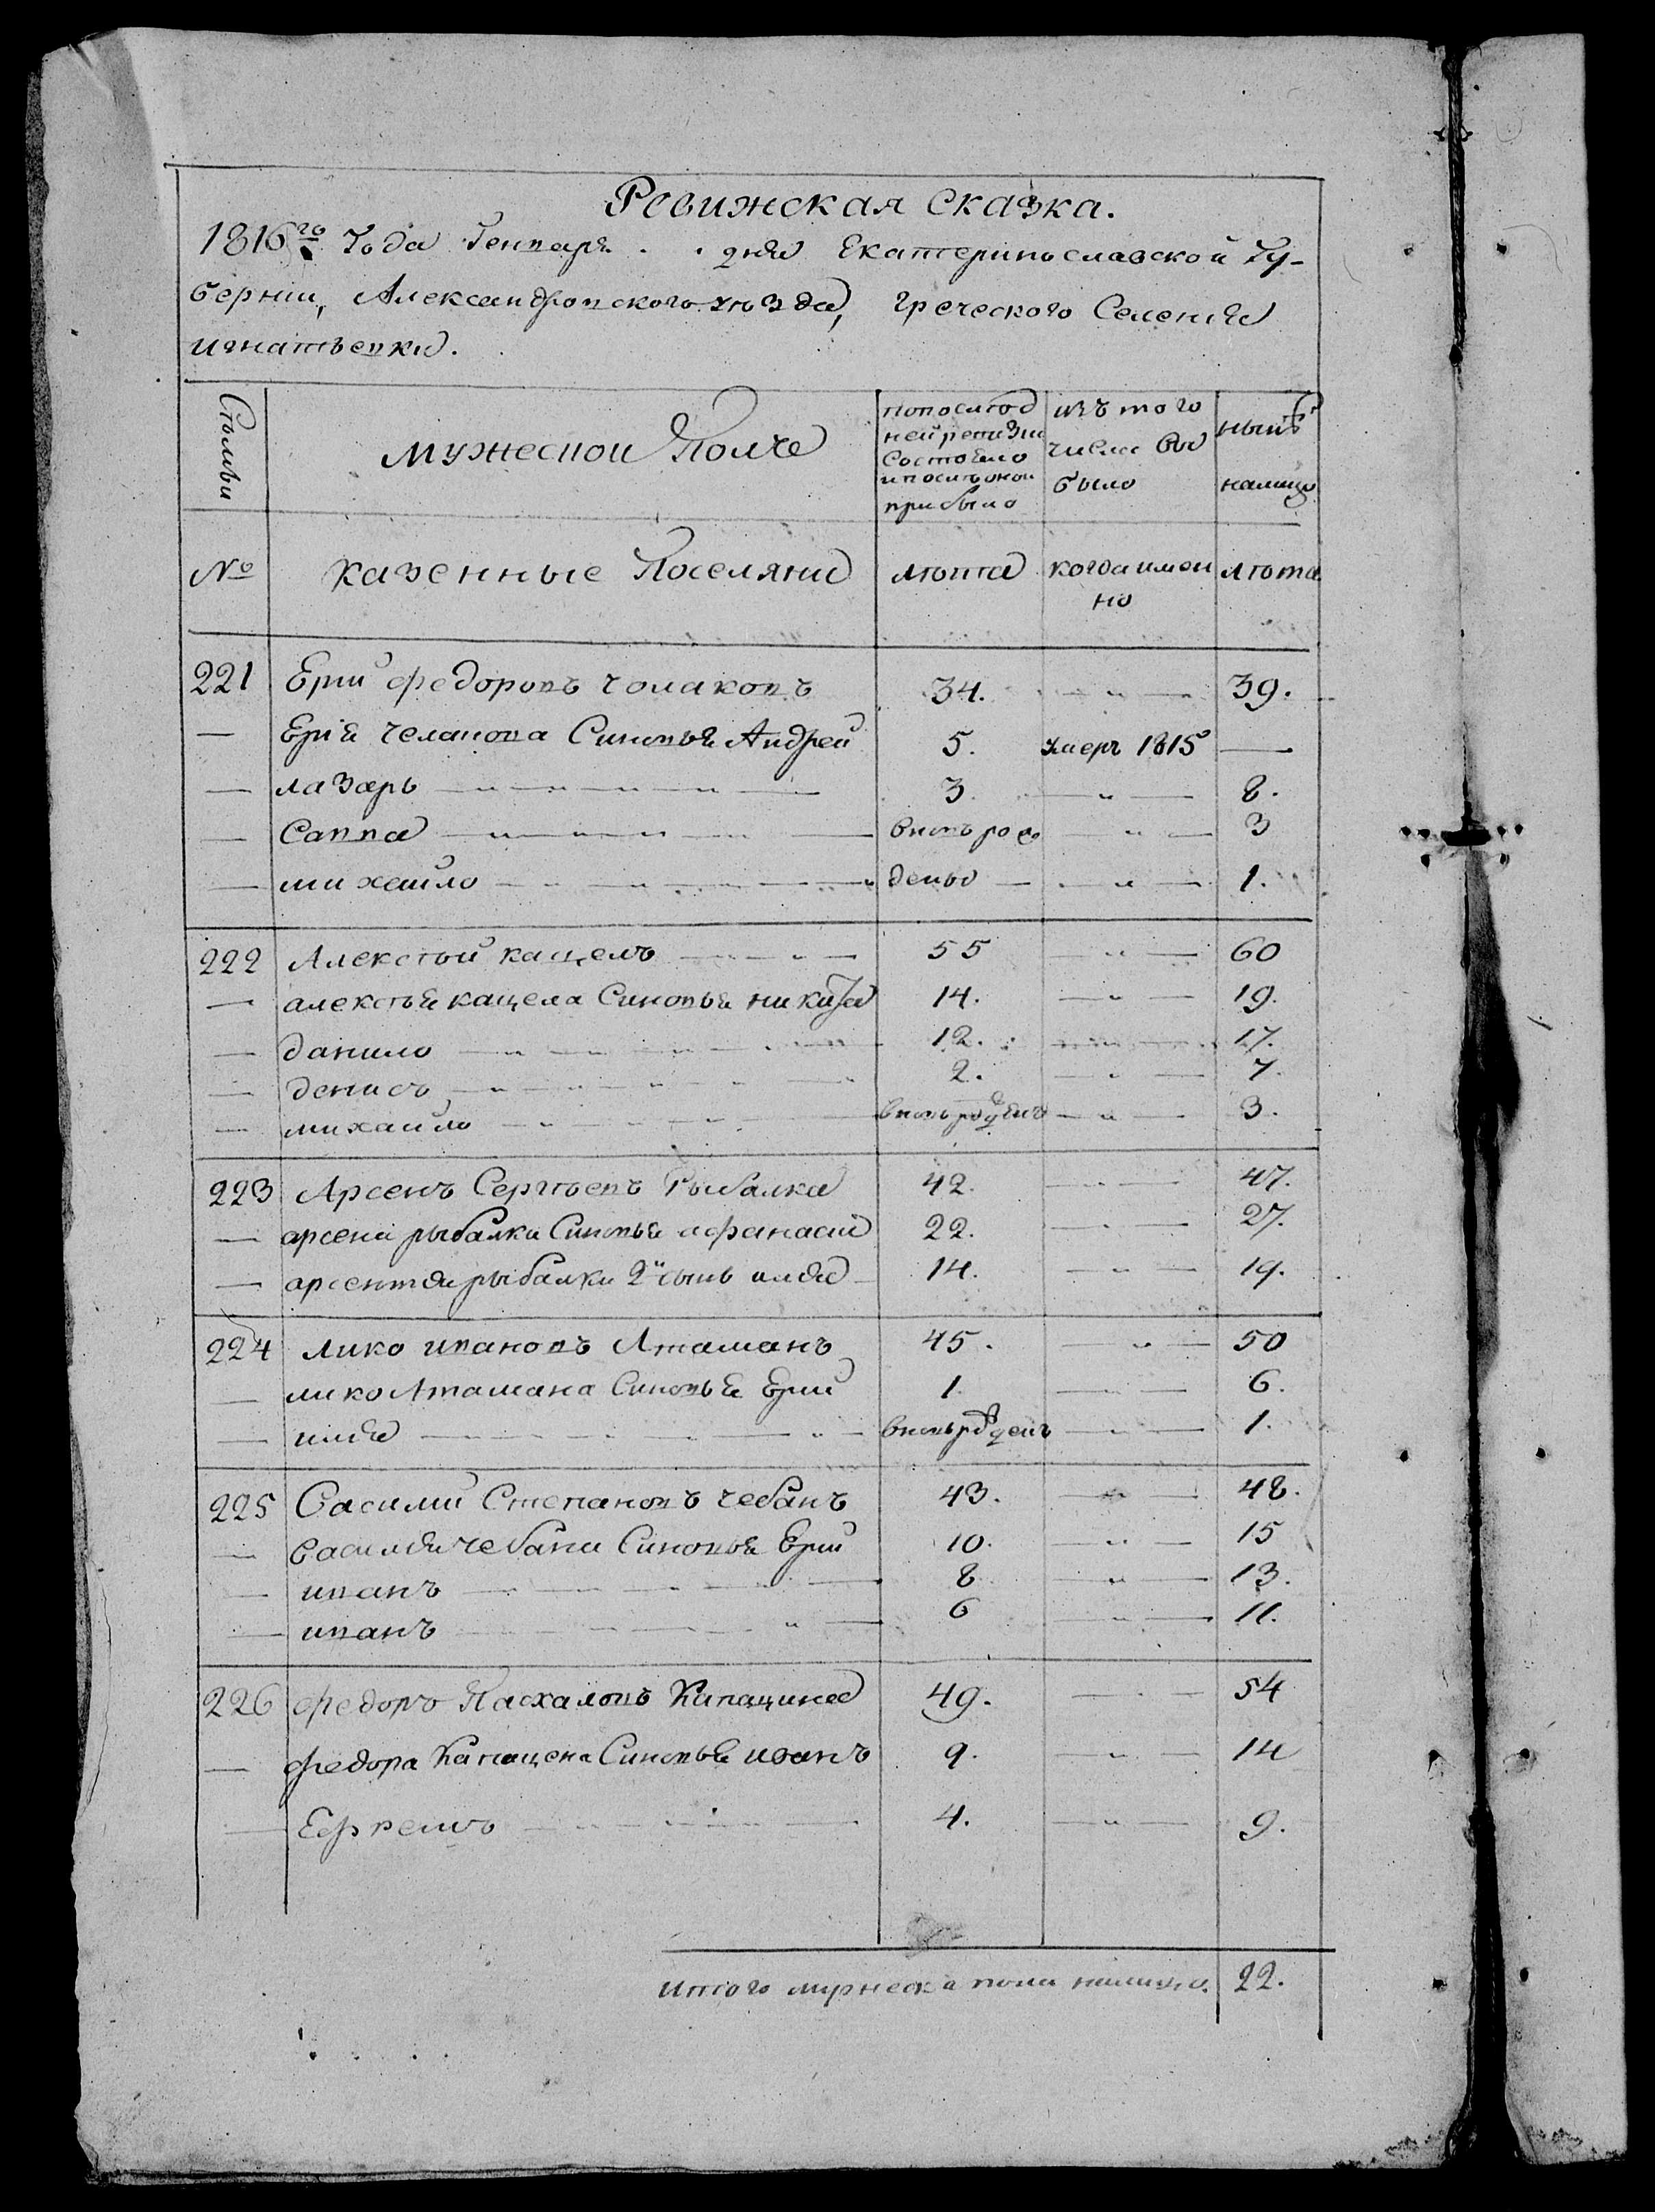 Ревижская Сказка.
1816го Года Генваря . . дня Екатеринославской Гу-
бернии, Александровского уезда, греческого Селения
игнатьевки.
Семьи
мужеской Полъ
попослед
ней ревизии
состояло
и после оной
прибыло
изъ того
числа вы
было
ныне
налицо
№
казенные Поселяне
лета
когда имен
но
лета
221 Ерий федоровъ чолаковъ 34. — „ — 39.
— Ерия челакова Синовья Андрей 5. умеръ 1815 —
— лазарь — „ — 3. — „ — 8.
— Савва — „ — вновь рож — „ — 3
— михайло — „ — дены — „ — 1.
222 Алексѣй кацелъ — „ — 55 — „ — 60
— алексѣя кацела Синовья никита 14. — „ — 19.
— данило — „ — 12. — „ — 17.
— денисъ — „ — 2. — „ — 7.
— михайло — „ — вновь рожденъ — „ — 3.
223 Арсенъ Сергѣевъ Рыбалка 42. — „ — 47.
— арсена рыбалки Синовья афанасий 22. — „ — 27.
— арсентия рыбалки 2й сынъ илия 14. — „ — 19.
224 лико ивановъ Атаманъ 45. — „ — 50
— лико Атамана Синовья Ерий 1. — „ — 6.
— илия — „ — вновь рожденъ — „ — 1.
225 Василий Степановъ чебанъ 43. — „ — 48.
— Василия чебана Синовья Ерий 10. — „ — 15
— иванъ — „ — 8 — „ — 13.
— иванъ — „ — 6 — „ — 11.
226 федоръ Пасхаловъ Капацина 49. — „ — 54
— федора Капацена Синовья иванъ 9. — „ — 14
— Ефремъ — „ — 4. — „ — 9.
Итого мужеска пола налицо. 22.